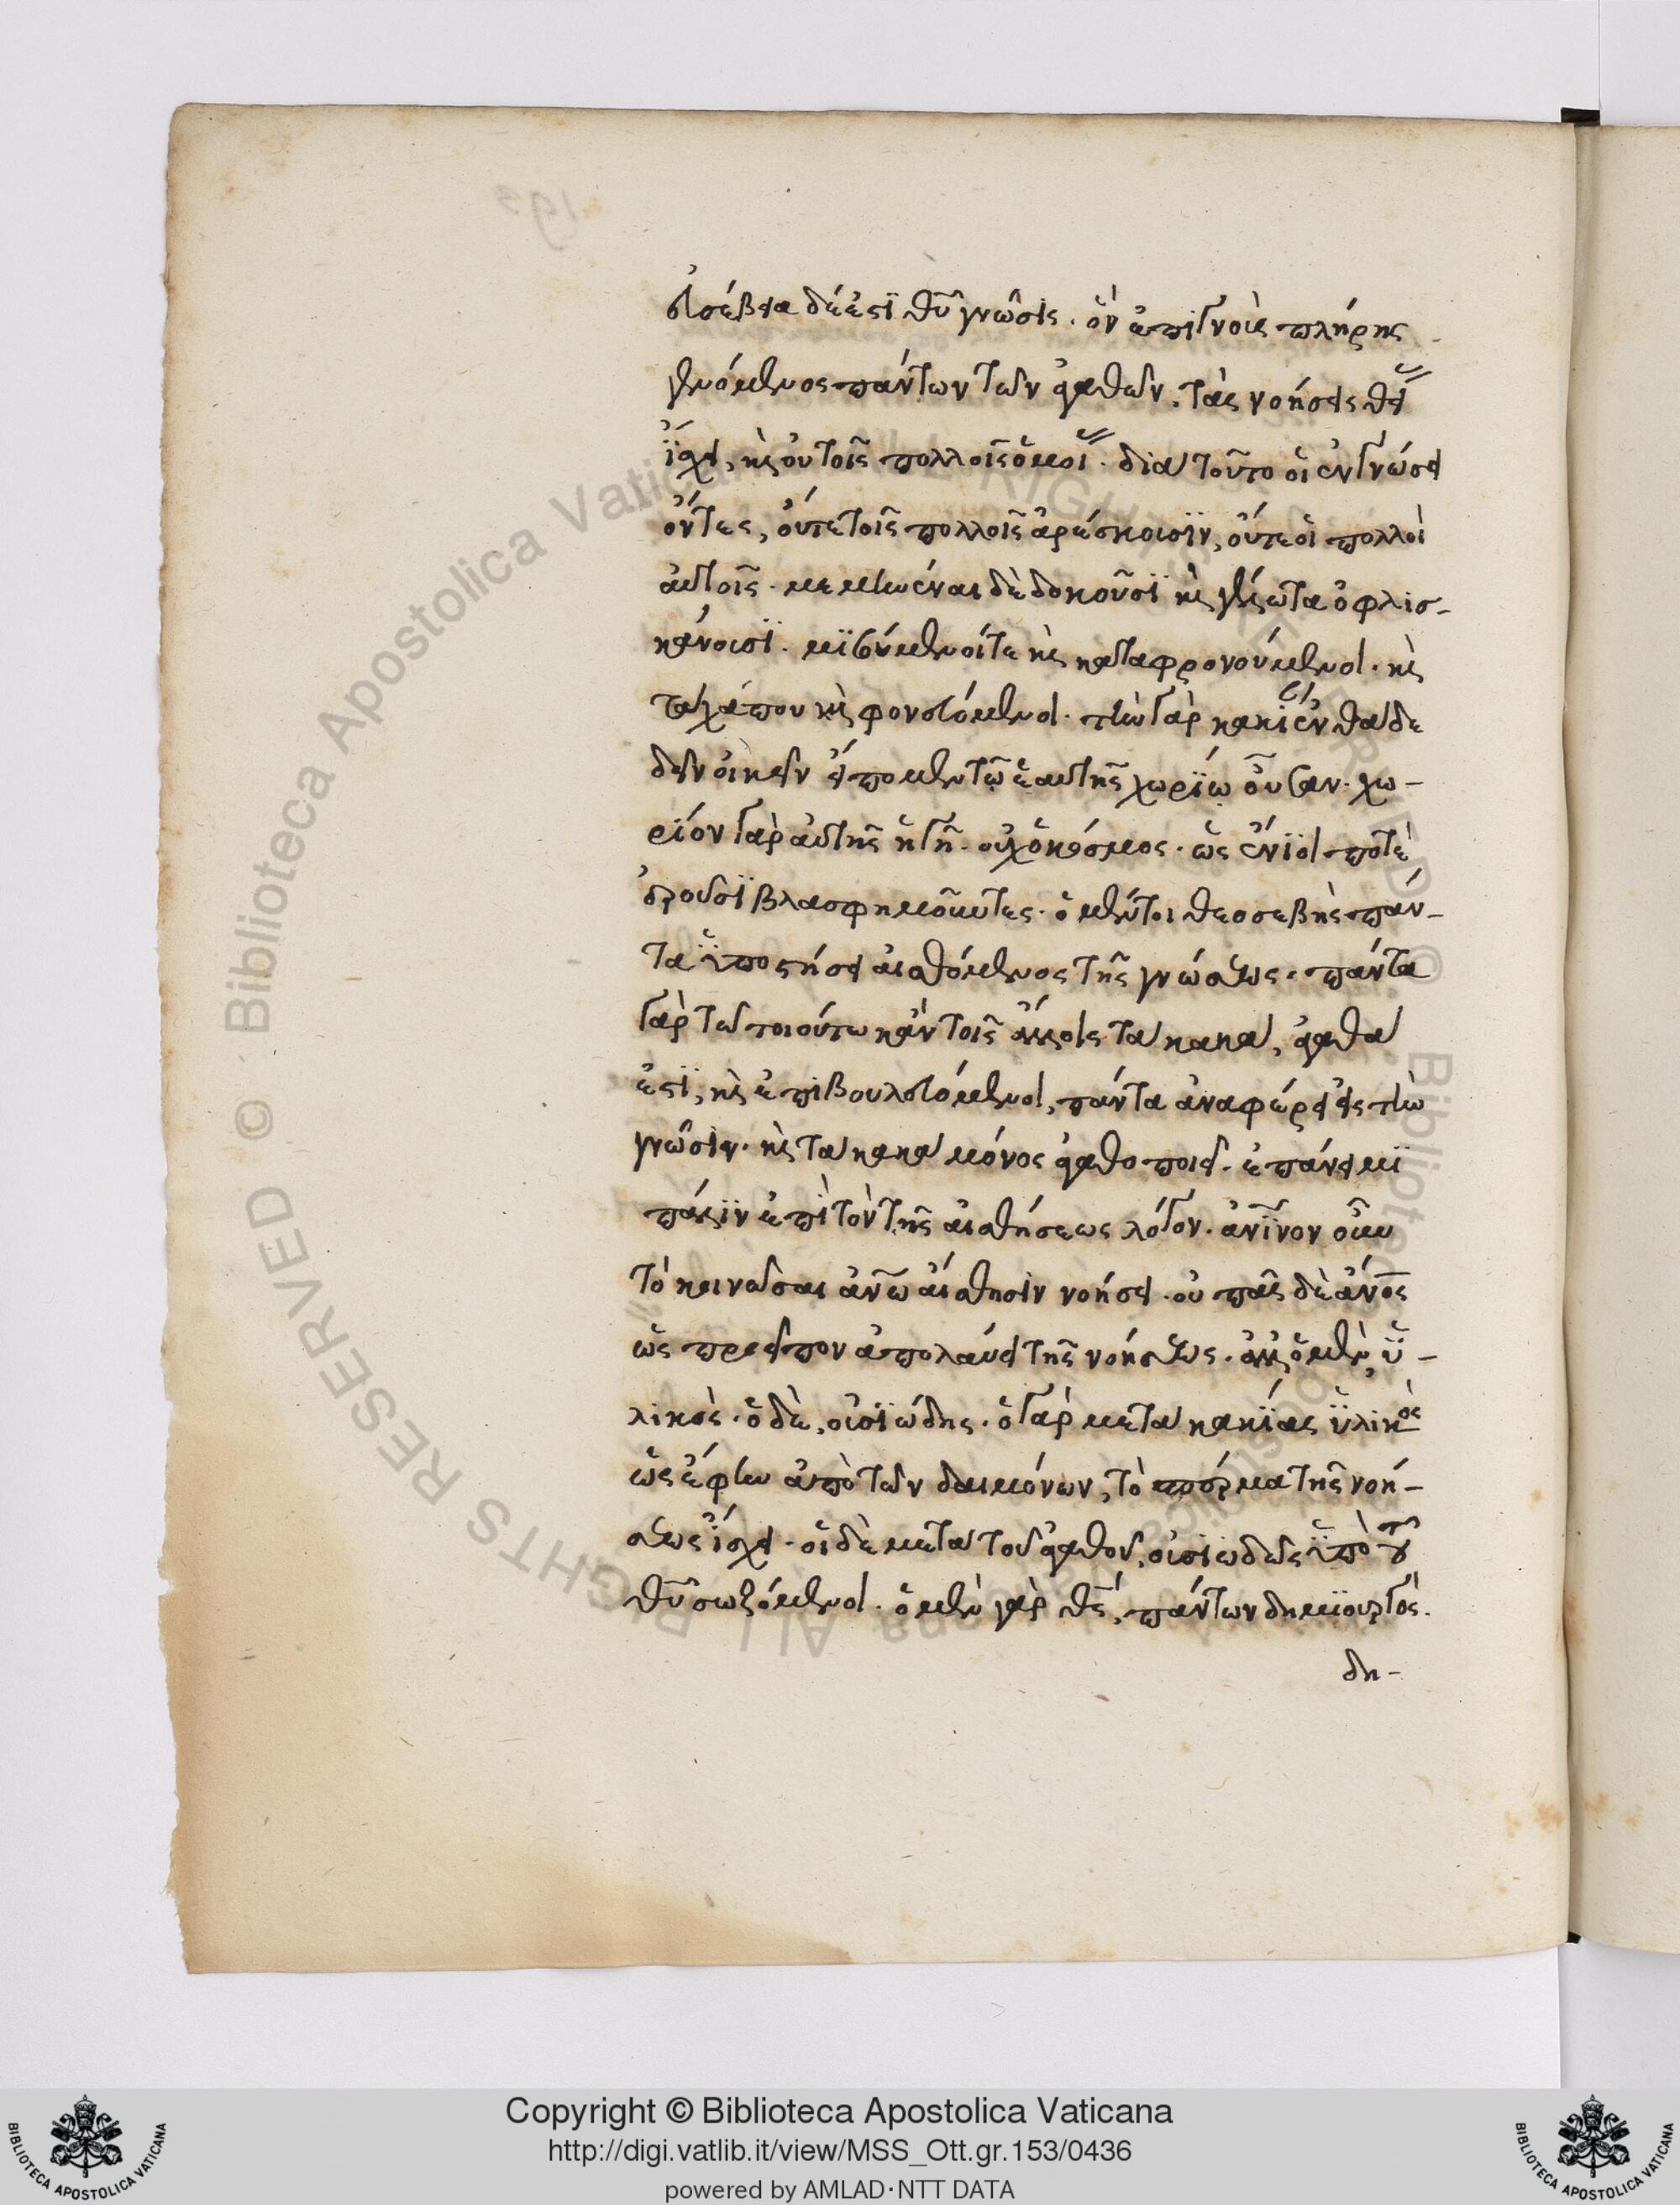 εὐσέβεια δέ ἐστὶ θῦ γνῶσις. ὃν ἐπιγνοὺς πλήρης
γενόμενος πάντων τῶν ἀγαθῶν. τὰς νοήσεις θεί
ἴσχει, κὶ οὐ τοῖς πολλοῖς ὁμοί. διὰ τοῦτο οἱ ἐν γνώσει
ὄντες, οὔτε τοῖς πολλοῖς ἀρέσκουσϊν, οὔτε οἱ πολλοὶ
αὐτοῖς. μεμηνέναι δὲ δοκοῦσϊ κὶ γέλωτα ὀφλισ-
κάνουσϊ. μϊσούμενοί τε κὶ καταφρονούμενοι. κὶ
τάχά που κὶ φονευόμενοι. τὴν γὰρ κακί ἐνθάδε
δεῖν οἰκεῖν εἴπομεν τῷ ἑαυτῆς χωρίῳ οὖσαν. χω-
ρίον γὰρ αὐτῆς ἡ γῆ. οὐχ ὁ κόσμος. ὡς ἔνϊοί ποτὲ
ἐροῦσϊ βλασφημοῦντες. ὁ μέντοι θεοσεβὴς πάν-
τα ὑποστήσει αἰσθόμενος τῆς γνώσεως. πάντα
γὰρ τῷ τοιούτῳ κἂν τοῖς ἄλλοις τὰ κακὰ, ἀγαθά
ἐστϊ, κὶ ἐπιβουλευόμενοι, πάντα ἀναφέρει εἰς τὴν
γνῶσιν. κὶ τὰ κακὰ μόνος ἀγαθοποιεῖ. ἐπάνειμϊ
πάλϊν ἐπὶ τὸν τῆς αἰσθήσεως λόγον. ἀνϊνον οὖν
τὸ κοινωνῆσαι ἀνῶ αἴσθησιν νοήσει. οὐ πᾶς δὲ ἄνος
ὡς προεῖπον ἀπολαύει τῆς νοήσεως. ἀλλ ὁ μὲν, ὑ-
λικὸς. ὁ δὲ, οὐσϊώδης. ὁ γὰρ μετὰ κακίας ὑλικὸς
ὡς ἔφην ἀπὸ τῶν δαιμόνων, τὸ σπέρμα τῆς νοή-
σεως ἴσχει. οἱ δὲ μετὰ τοῦ ἀγαθοῦ, οὐσϊωδῶς ὑπὸ τοῦ
θῦ σωζόμενοι. ὁ μὲν γὰρ θς, πάντων δημϊουργός.
δη-
Copyright © Biblioteca Apostolica Vaticana
http://digi.vatlib.it/view/MSS_Ott.gr.153/0436
powered by AMLAD·NTT DATA